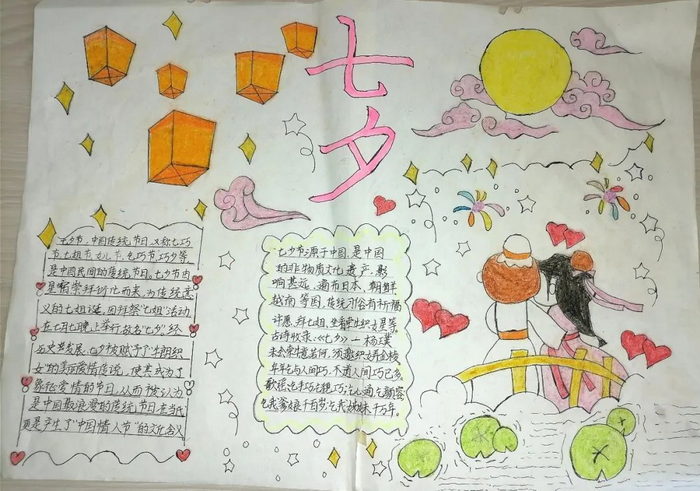 七夕
七夕节，中国传统节日，又称七巧
节、七姐节、女儿节、乞巧节、巧夕等，
是中国民间的传统节日。七夕节由
星宿崇拜衍化而来，为传统意
义的七姐诞，因拜祭"七姐"活动
在七月七晚上举行，故名"七夕"。经
历史发展，七夕被赋予了"牛郎织
女"的美丽爱情传说，使其成为了
象征爱情的节日，从而被认为
是中国最浪漫的传统节日，在当代
更是产生了"中国情人节"的文化含义
七夕节源于中国，是中国
的非物质文化遗产，影
响甚远，遍布日本、朝鲜
越南等国，传统习俗有祈福
许愿、拜七姐、坐看牵牛织女星等
古诗收录：《七夕》—杨璞
未会牵牛意若何，须邀织女弄金梭
年年乞与人间巧，不道人间巧已多。
乞我爹娘千百岁，乞我姊妹千万年。